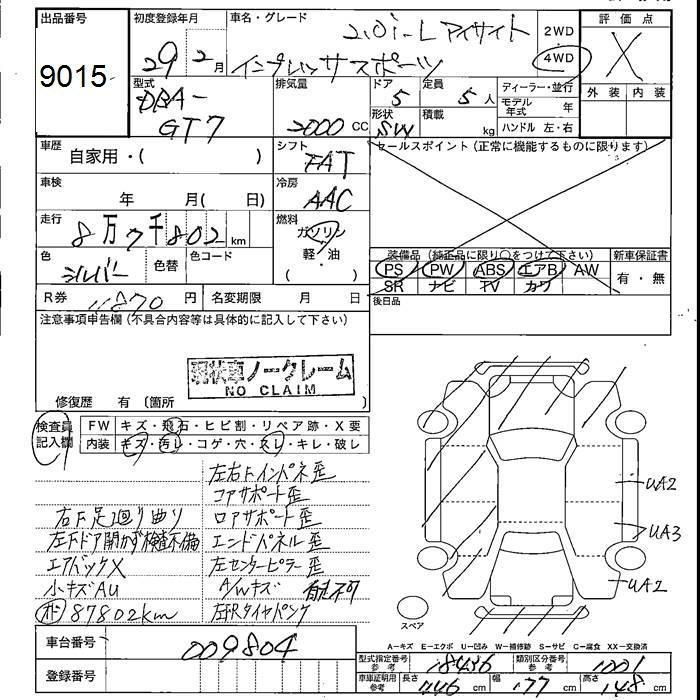 出品番号 9015
初度登録年月 29 2月
車名・グレード 2.0i-L アイサイト
インプレッサスポーツ
2WD
4WD
評価点 X
外装 内装
型式 DBA-
GT7
排気量 2000 CC
ドア 5
形状 SW
定員 5人
積載 kg
ディーラー・並行
モデル年式 年
ハンドル 左・右
車歴 自家用・( )
シフト FAT
セールスポイント (正常に機能するものに限ります)
車検 年 月( 日)
冷房 AAC
走行 8万7千802 km
燃料 ガソリン
軽・油
( )
色 シルバー 色替 色コード
装備品 (純正品に限り○をつけて下さい)
PS PW ABS エアB AW
SR ナビ TV カワ
新車保証書
有・無
R券 11870 円 名変期限 月 日
後日品
注意事項申告欄 (不具合内容等は具体的に記入して下さい)
現状車ノークレーム
NO CLAIM
修復歴 有 〔箇所 〕
検査員記入欄
FW キズ・飛石・ヒビ割・リペア跡・X要
内装 キズ・汚レ・コゲ・穴・スレ・キレ・破レ
左右Fインパネ歪
コアサポート歪
右F足廻り曲り ロアサポート歪
左Fドア開かず検査不備 エンドパネル歪
エアバックX 左センターピラー歪
小キズAU A/Wキズ
走 87802km 左Rタイヤパンク
UA2
UA3
UA2
スペア
A-キズ E-エクボ U-凹み W-補修跡 S-サビ C-腐食 XX-交換済
車台番号 009804
登録番号
型式指定番号 参考 18436 類別区分番号 参考 1001
車庫証明用 参考 長さ 446 cm 幅 177 cm 高さ 148 cm